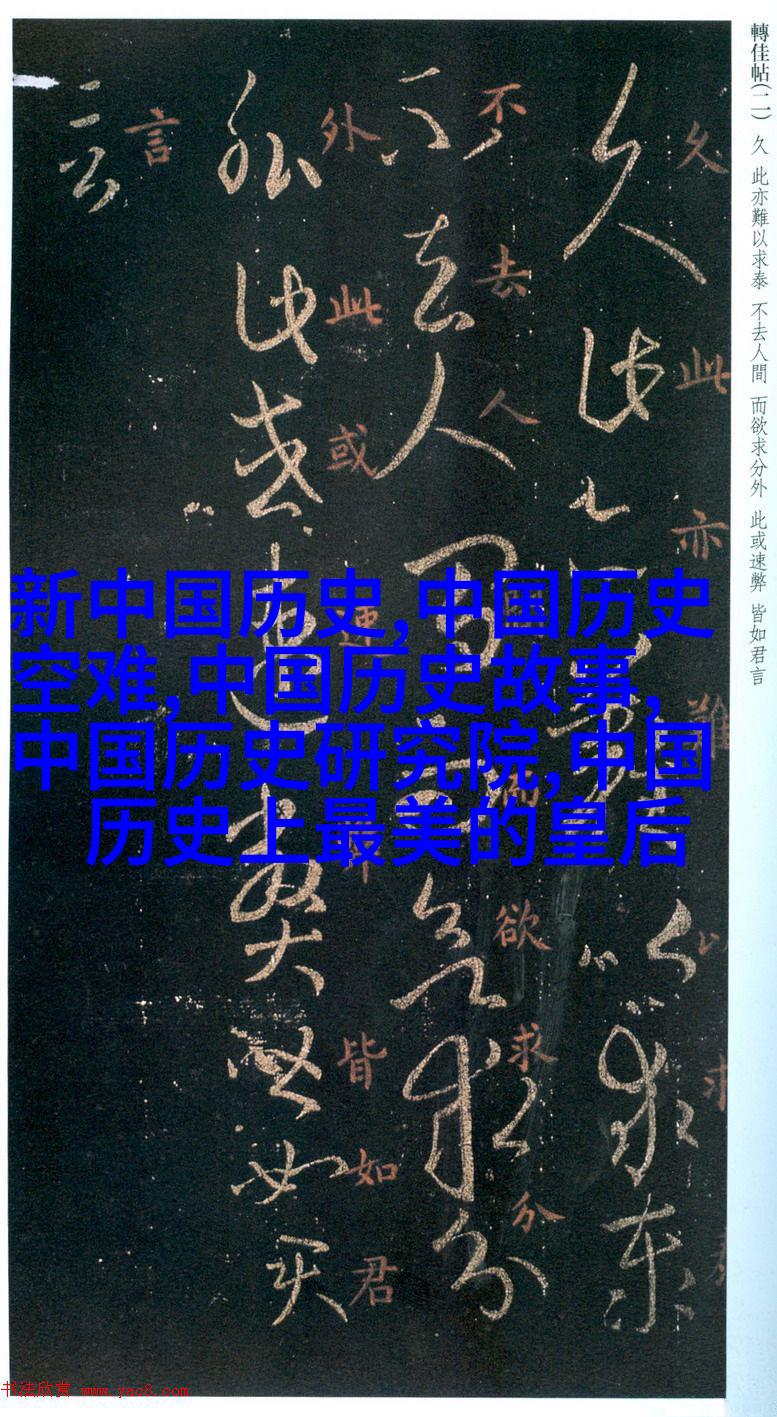 轉佳帖(二) 久 此亦難以求泰 不去人間 而欲求分外 此或速弊 皆如君言
久此亦難以求
不去人間而欲求分
外此或速弊皆如君
言
新中国历史,中国历史
空难,中国历史故事,
中国历史研究院,中国
历史上最美的皇后
书法欣赏 www.yac8.com